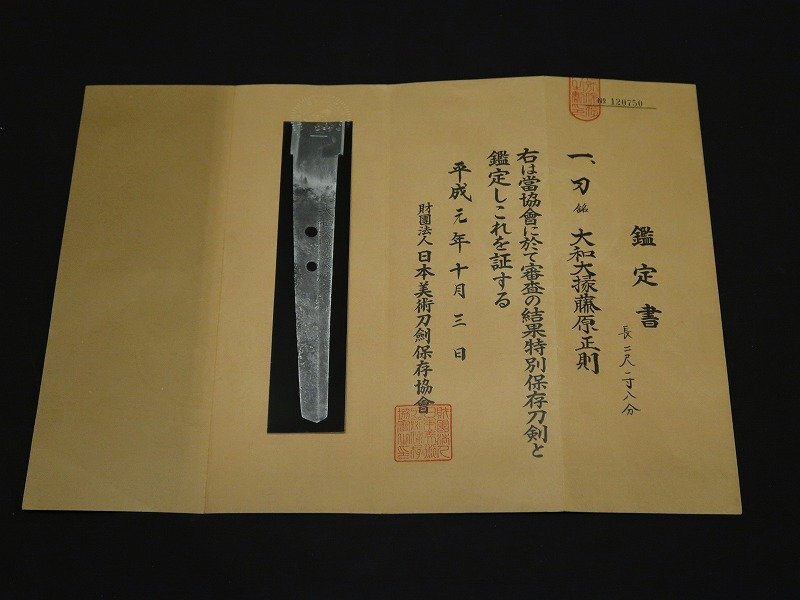 鑑定書
№ 120750
一、刀 銘 大和大掾藤原正則
長二尺一寸八分
右は當協會に於て審査の結果特別保存刀剣と
鑑定しこれを証する
平成元年十月三日
財團法人日本美術刀劍保存協會